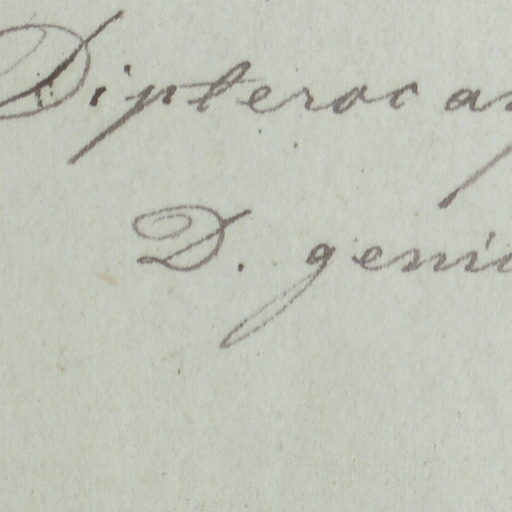 Dipterocar
D. genic